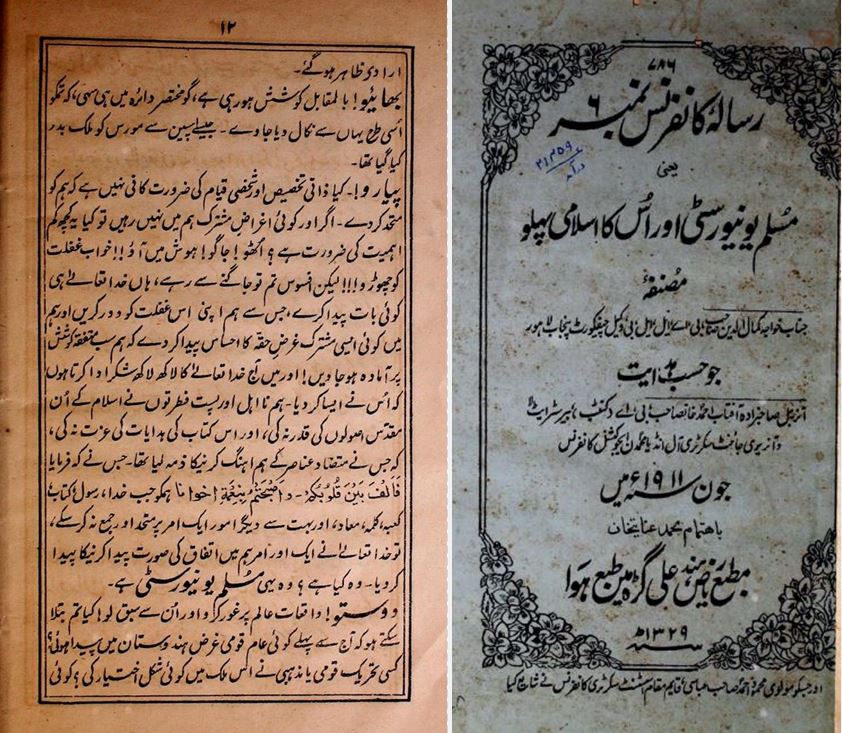 ۱۲
ارادی ظاہر ہوگئے۔
بھائیو! بالمقابل کوشش ہورہی ہے، گو مختصر دائرہ میں ہی سہی، کہ تمکو
اُسی طرح یہاں سے نکال دیا جاوے۔ جیسے اسپین سے مورس کو ملک بدر
کیا گیا تھا۔
پیارو!۔ کیا ذاتی تخصیص اور شخصی قیام کی ضرورت کافی نہیں ہے کہ ہم کو
متحد کردے۔ اگر اور کوئی اغراض مشترک ہم میں نہیں رہیں تو کیا یہ کچھ کم
اہمیت کی ضرورت ہے؟ اُٹھو! جاگو! ہوش میں آؤ!! خواب غفلت
کو چھوڑو!!! لیکن افسوس تم تو جاگنے سے رہے، ہاں خدا تعالےٰ ہی
کوئی بات پیدا کرے، جس سے ہم اپنی اس غفلت کو دور کریں اور ہم
میں کوئی ایسی مشترک غرض حقہ کا احساس پیدا کردے کہ ہم سب متفقہ کوشش
پر آمادہ ہوجاویں! اور میں آج خدا تعالےٰ کا لاکھ لاکھ شکر ادا کرتا ہوں
کہ اُس نے ایسا کردیا۔ ہم نا اہل اور پست فطرتوں نے اسلام کے اُن
مقدس اصولوں کی قدر نہ کی، اور اس کتاب کی ہدایات کی عزت نہ کی،
کہ جس نے متضاد عناصر کے ہم آہنگ کرنیکا ذمہ لیا تھا۔ جس نے کہ فرمایا
فَاَلَّفَ بَيْنَ قُلُوْبِكُمْ۔ وَاَصْبَحْتُمْ بِنِعْمَةِ اِخْوَانًا ہمکو جب خدا، رسول، کتاب،
کعبہ، کلمہ، معاد، اور بہت سے دیگر امور ایک امر پر متحد اور جمع نہ کرسکے،
تو خدا تعالےٰ نے ایک اور امر ہم میں اتفاق کی صورت پیدا کرنیکا پیدا
کردیا۔ وہ کیا ہے؟ وہ یہی مسلم یونیورسٹی ہے۔
دوستو! واقعات عالم پر غور کرو اور اُن سے سبق لو! کیا تم بتلا
سکتے ہو کہ آج سے پہلے کوئی عام قومی غرض ہندوستان میں پیدا ہوئی؟
کسی تحریک قومی یا مذہبی نے اس ملک میں کوئی شکل اختیار کی؟ کوئی
۷۸۶
رسالۂ کانفرنس نمبر ۶
یعنی
مسلم یونیورسٹی اور اُس کا اسلامی پہلو
مصنفۂ
جناب خواجہ کمال الدین صاحب بی اے، ایل ایل بی وکیل چیفکورٹ پنجاب لاہور
جو حسب ہدایت
آنریبل صاحبزادہ آفتاب احمد خانصاحب بی اے کنٹب بیرسٹر ایٹ لا
و آنریری جائنٹ سکرٹری آل انڈیا محمدن ایجوکیشنل کانفرنس
جون سنہ ۱۹۱۱ء میں
باہتمام محمد عنایتخان
مطبع فیض ہند علی گڑھ میں طبع ہوا
سنہ ۱۳۲۹ھ
اور جسکو مولوی محمد احمد صاحب عباسی قایم مقام اسسٹنٹ سکرٹری کانفرنس نے شائع کیا